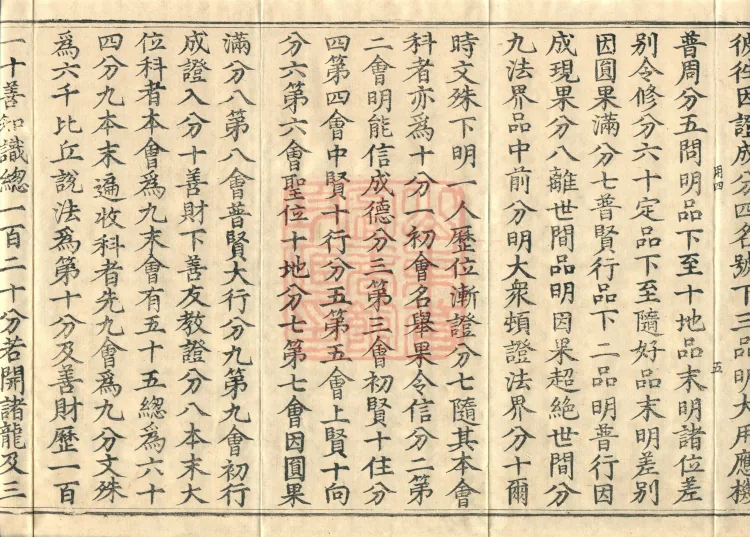 彼往因證成分四名號下三品明大用應機
普周分五問明品下至十地品末明諸位差
別令修分六十定品下至隨好品末明差別
因圓果滿分七普賢行品下二品明普行因
成現果分八離世間品明因果超絕世間分
九法界品中前分明大衆頓證法界分十爾
時文殊下明一人歷位漸證分七隨其本會
科者亦爲十分一初會名舉果令信分二第
二會明能信成德分三第三會初賢十住分
四第四會中賢十行分五第五會上賢十向
分六第六會聖位十地分七第七會因圓果
滿分八第八會普賢大行分九第九會初行
成證入分十善財下善友教證分八本末大
位科者本會爲九末會有五十五總爲六十
四分九本末遍收科者先九會爲九分文殊
爲六千比丘說法爲第十分及善財歷一百
一十善知識總一百二十分若開諸龍及三
五